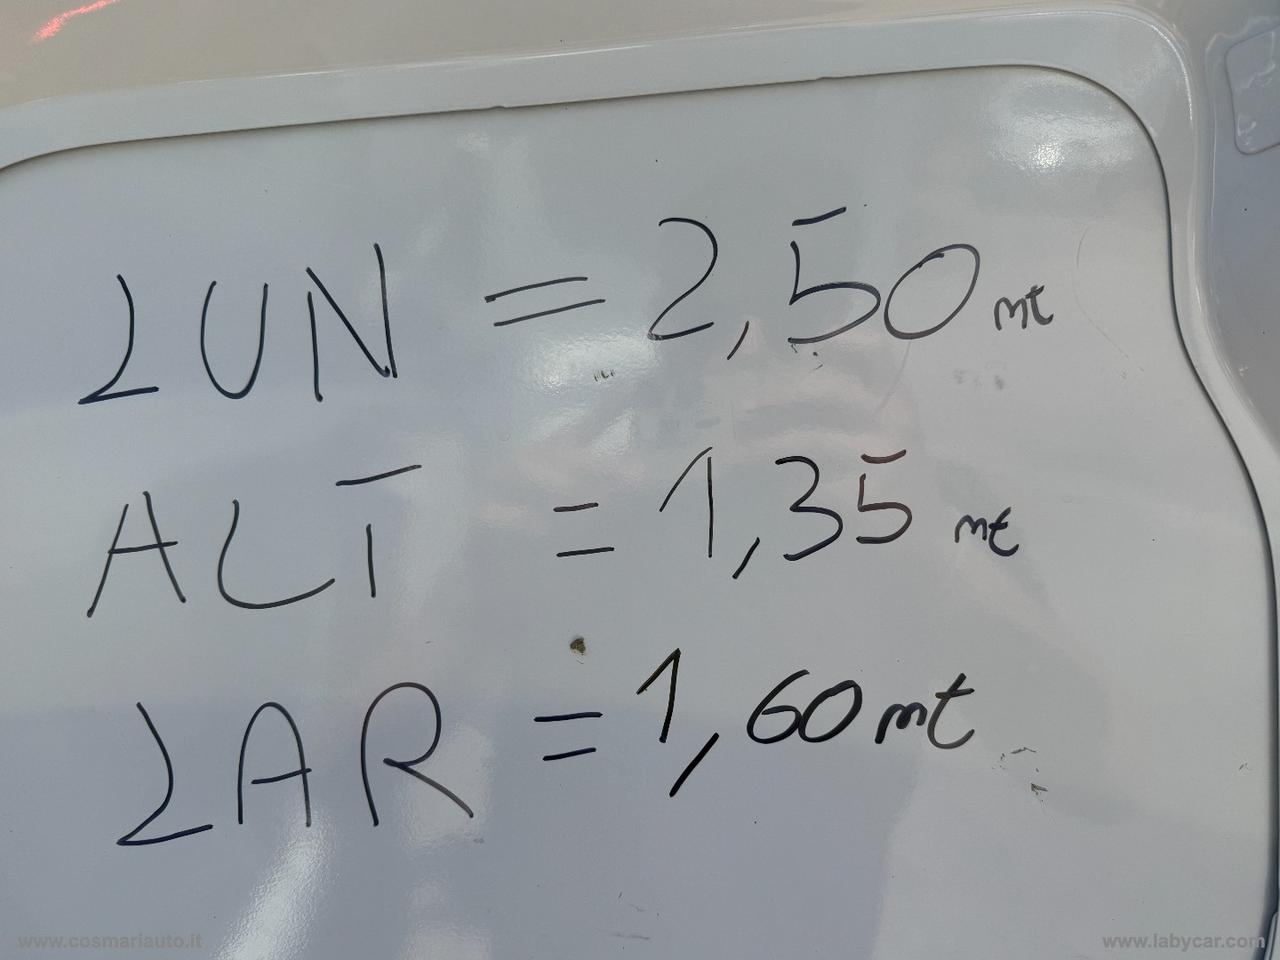 LUN = 2,50 mt
ALT = 1,35 mt
LAR = 1,60 mt
www.cosmariauto.it
www.labycar.com